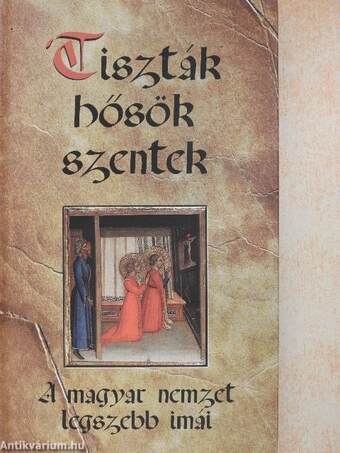 Tiszták
hősök
szentek
A magyar nemzet
legszebb imái
Antikvárium.hu